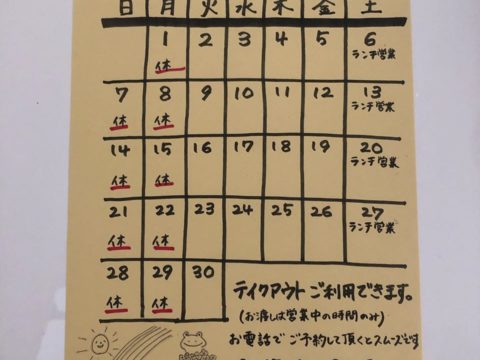 日 月 火 水 木 金 土
1 2 3 4 5 6
休 ランチ営業
7 8 9 10 11 12 13
休 休 ランチ営業
14 15 16 17 18 19 20
休 休 ランチ営業
21 22 23 24 25 26 27
休 休 ランチ営業
28 29 30
休 休
テイクアウトご利用できます。
(お渡しは営業中の時間のみ)
お電話でご予約して頂くとスムーズです